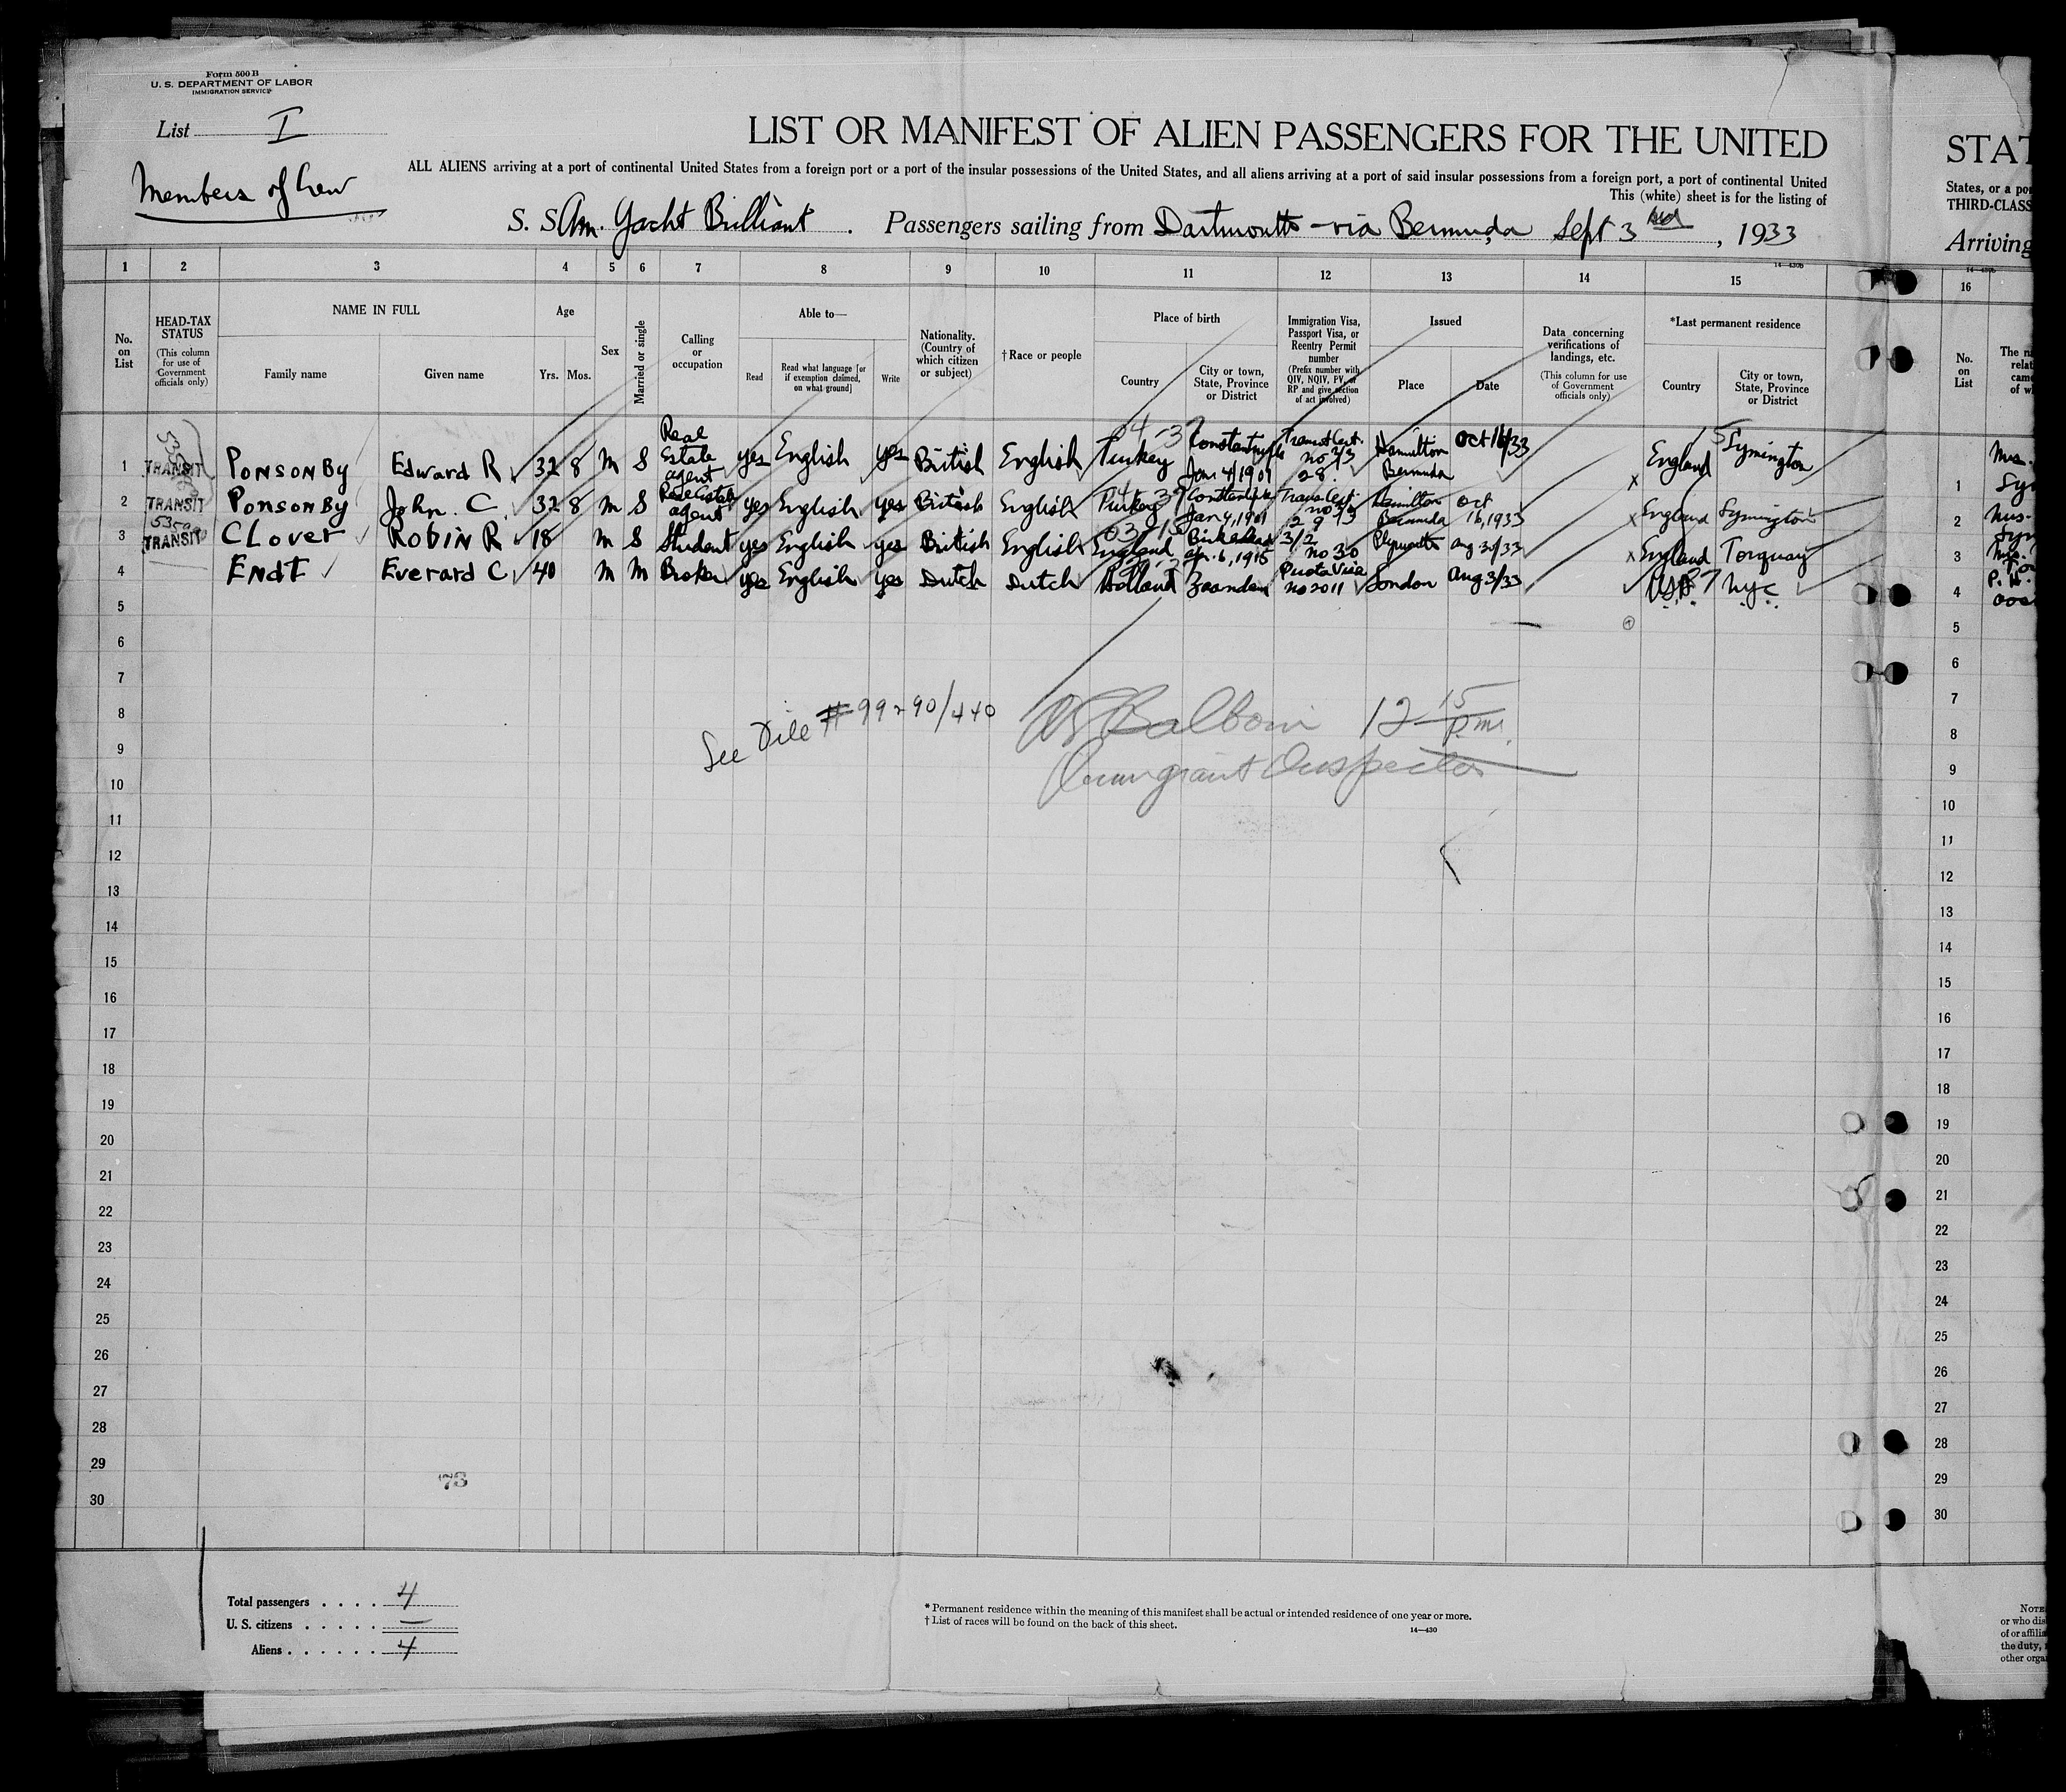 Form 500 B
U. S. DEPARTMENT OF LABOR
IMMIGRATION SERVICE
List I
Members of Crew
LIST OR MANIFEST OF ALIEN PASSENGERS FOR THE UNITED
ALL ALIENS arriving at a port of continental United States from a foreign port or a port of the insular possessions of the United States, and all aliens arriving at a port of said insular possessions from a foreign port, a port of continental United
This (white) sheet is for the listing of
S. S. Am. Yacht Brilliant. Passengers sailing from Dartmouth - via Bermuda Sept 3 , 1933
1 2 3 4 5 6 7 8 9 10 11 12 13 14 15
14—430b
No. on List
HEAD-TAX STATUS
(This column for use of Government officials only)
NAME IN FULL
Family name Given name
Age
Yrs. Mos.
Sex
Married or single
Calling or occupation
Able to—
Read Read what language [or if exemption claimed, on what ground] Write
Nationality. (Country of which citizen or subject)
†Race or people
Place of birth
Country City or town, State, Province or District
Immigration Visa, Passport Visa, or Reentry Permit number
(Prefix number with QIV, NQIV, PV, or RP and give section of act involved)
Issued
Place Date
Data concerning verifications of landings, etc.
(This column for use of Government officials only)
*Last permanent residence
Country City or town, State, Province or District
1 TRANSIT PONSONBY Edward R 32 8 M S Real Estate agent yes English yes British English Turkey Constantinople Jan 4/1901 Transit Cert. no 3/3 28. Hamilton Bermuda Oct 16/33 England Symington
2 TRANSIT PONSONBY John. C. 32 8 M S Real Estate agent yes English yes British English Turkey Jan 4, 1901 Trans Cert. 29 Hamilton Bermuda Oct 16, 1933 England Symington
3 TRANSIT CLover RobiN R 18 M S Student yes English yes British English England Birkenhead Apr. 6, 1915 3/2 no 30 Plymouth Aug 30/33 England Torquay
4 ENdt Everard C 40 M M Broker yes English yes Dutch Dutch Holland Zaandam no 2011 London Aug 3/33 USA NYC
5
6
7
8
9
10
11
12
13
14
15
16
17
18
19
20
21
22
23
24
25
26
27
28
29
30
See File # 99290/440
12 15 p.m.
Immigrant Inspector
73
Total passengers . . . . 4
U. S. citizens . . . . . —
Aliens . . . . . . 4
* Permanent residence within the meaning of this manifest shall be actual or intended residence of one year or more.
† List of races will be found on the back of this sheet.
14—430
STAT
States, or a por
THIRD-CLASS
Arriving
14—430b
16
No. on List
The na
relat
came
of w
1 Mrs.
2 Mrs.
3 Mrs.
4 P. H.
5
6
7
8
9
10
11
12
13
14
15
16
17
18
19
20
21
22
23
24
25
26
27
28
29
30
NOTE
or who dis
of or affilia
the duty,
other orga